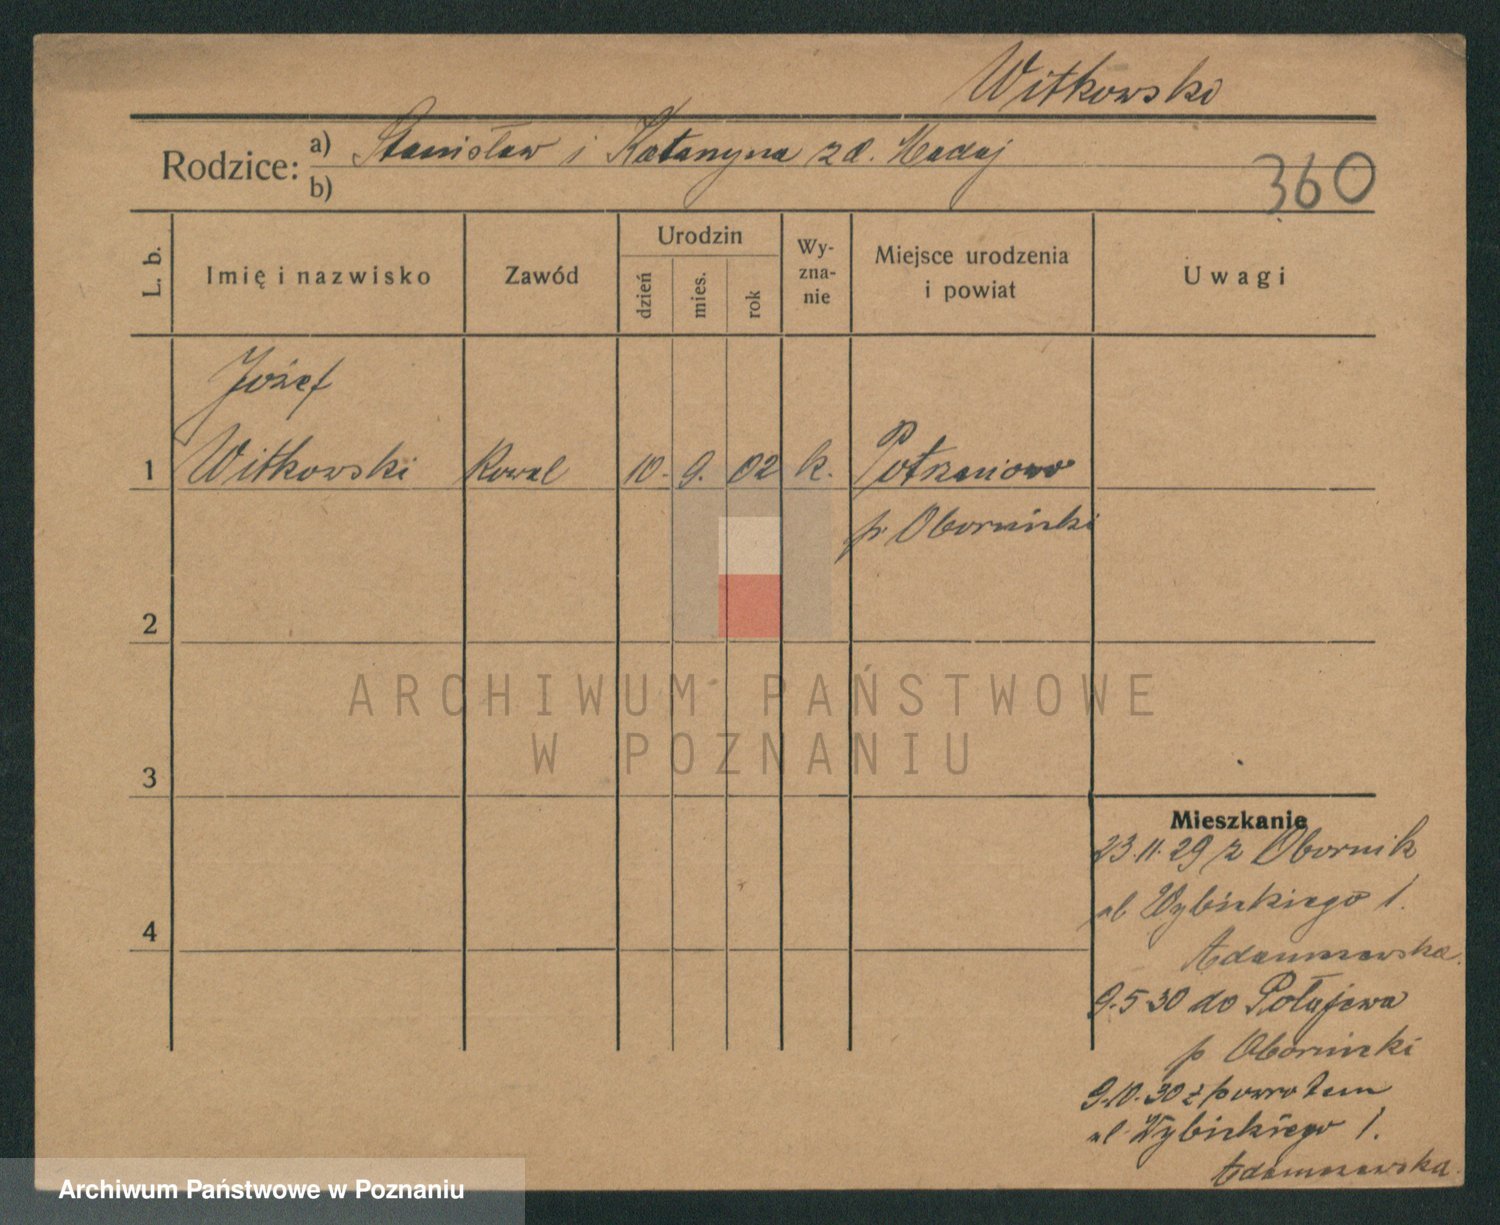 Witkowski
Rodzice: a) Stanisław i Katarzyna z d. Madaj
b)
360
L. b.
Imię i nazwisko
Zawód
Urodzin
dzień
mies.
rok
Wy-
zna-
nie
Miejsce urodzenia
i powiat
Uwagi
Józef
1 Witkowski Kowal 10. 9. 02 k. Potrzanowo
p Obornicki
2
ARCHIWUM PAŃSTWOWE
W POZNANIU
3
Mieszkanie
23.11.29 z Obornik
4
ul Wybickiego 1.
Adamszewska.
9.5 30 do Połajewa
p Obornicki
9.10.30 z powrotem
ul. Wybickiego 1.
Adamszewska.
Archiwum Państwowe w Poznaniu